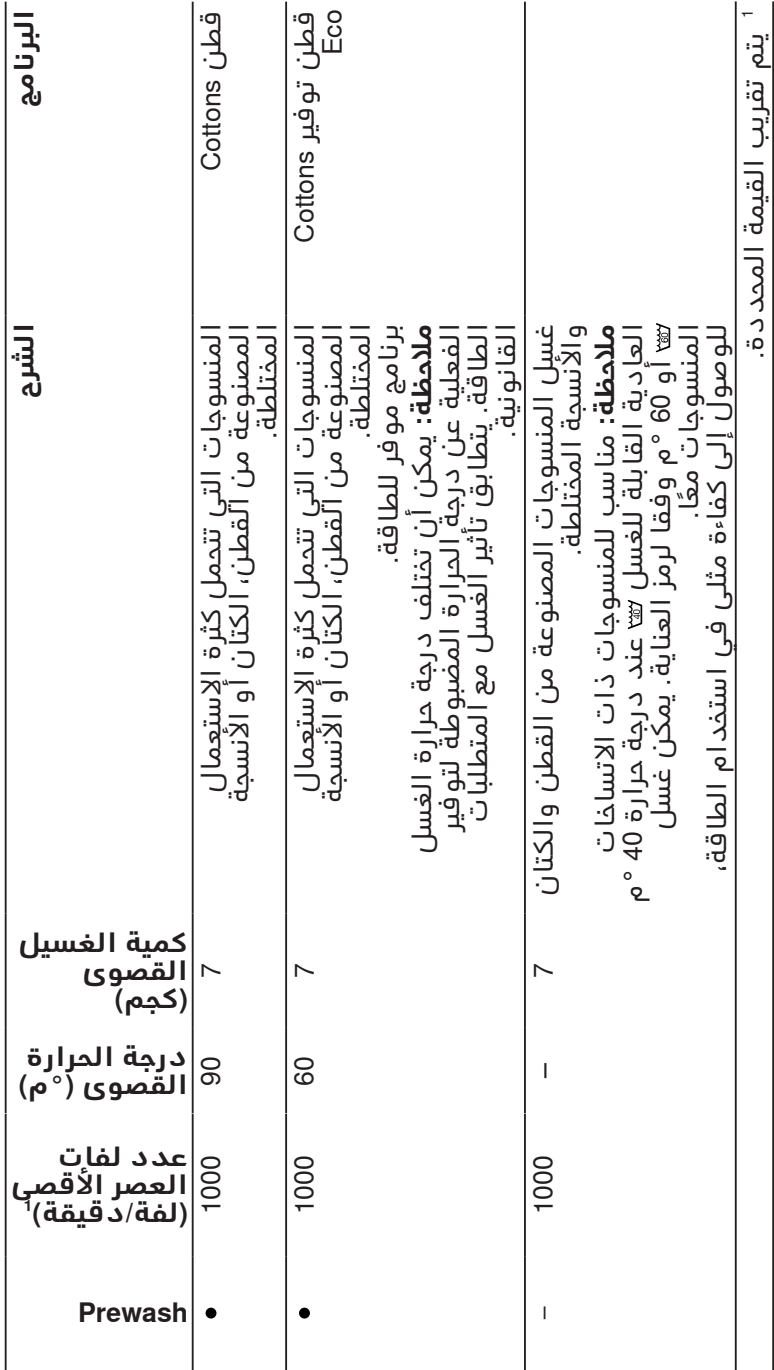 البرنامج
الشرح
كمية الغسيل
القصوى
(كجم)
درجة الحرارة
القصوى (°م)
عدد لفات
العصر الأقصى
(لفة/دقيقة)1
Prewash
قطن Cottons
المنسوجات التي تتحمل كثرة الاستعمال
المصنوعة من القطن، الكتان أو الأنسجة
المختلطة.
7
90
1000
●
قطن توفير Cottons
Eco
المنسوجات التي تتحمل كثرة الاستعمال
المصنوعة من القطن، الكتان أو الأنسجة
المختلطة.
برنامج موفر للطاقة.
ملاحظة: يمكن أن تختلف درجة حرارة الغسل
الفعلية عن درجة الحرارة المضبوطة لتوفير
الطاقة. يتطابق تأثير الغسل مع المتطلبات
القانونية.
7
60
1000
●
غسل المنسوجات المصنوعة من القطن والكتان
والأنسجة المختلطة.
ملاحظة: مناسب للمنسوجات ذات الاتساخات
العادية القابلة للغسل 40 عند درجة حرارة 40 °م
60 أو 60 °م وفقا لرمز العناية. يمكن غسل
المنسوجات معًا.
للوصول إلى كفاءة مثلى في استخدام الطاقة،
7
–
1000
–
1 يتم تقريب القيمة المحددة.